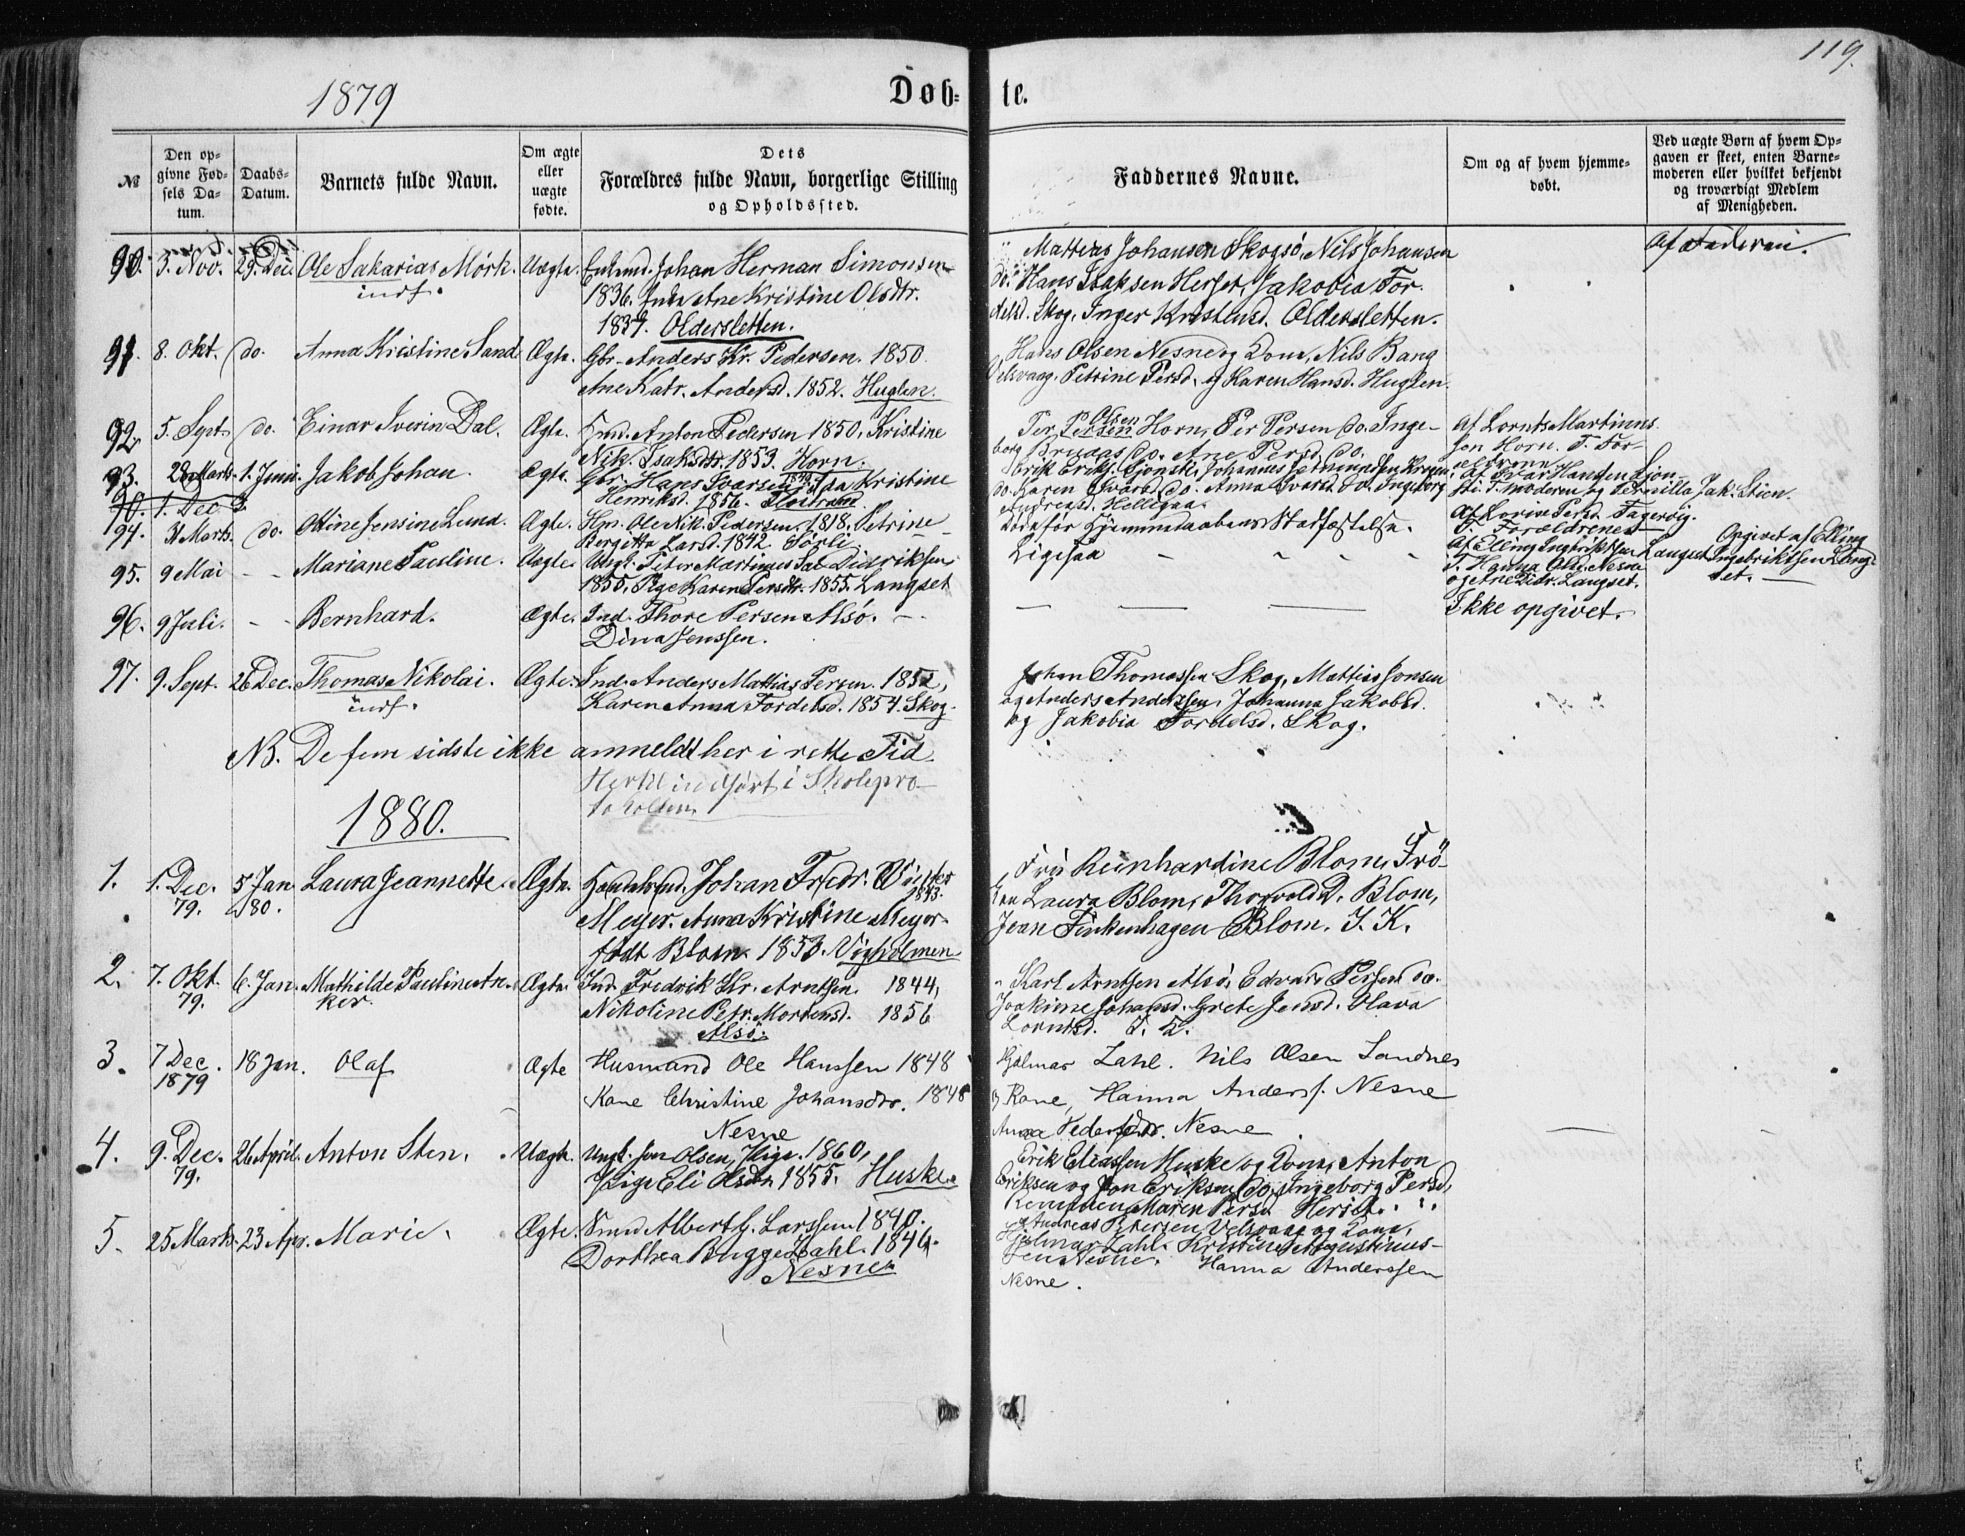 119.
1879
Døb-
te.
№
Den op-
givne Fød-
sels Da-
tum.
Daabs-
Datum.
Barnets fulde Navn.
Om ægte
eller
uægte
fødte.
Dets
Forældres fulde Navn, borgerlige Stilling
og Opholdssted.
Faddernes Navne.
Om og af hvem hjemme-
døbt.
Ved uægte Børn af hvem Op-
gaven er skeet, enten Barne-
moderen eller hvilket bekjendt
og troværdigt Medlem
af Menigheden.
90. 3. Nov. 29. Dec. Ole Sakarias Mörk. Uægte.
inds.
Enkemd. Johan Herman Simonsen
1836. Ane Kristine Olsdtr.
1837. Oldersletten.
Mattias Johansen Skogsö, Nils Johansen
do. Hans Isaksen Herset, Jakobia For-
delsd. Skog, Inger Kristensd. Oldersletten.
Af Faderen.
91. 8. Okt. do. Anna Kristine Sand Ægte.
Gbr. Anders Kr. Pedersen. 1850.
Ane Katr. Andersd. 1852. Huglen.
Hans Olsen Nesne og Kone, Nils Bang
Velsvaag, Petrine Persd. og Karen Hansd. Huglen.
92. 5. Sept. do. Einar Iverin Dal. Ægte.
Anton Pedersen 1850, Kristine
Nik. Isaksdtr. 1853. Horn.
Per Persen Olsen Horn, Per Persen do. Inge-
borg do. Ane Persd. do.
Af Lornts Martinus-
sen Horn. T. For-
ældrene
93. 28 Marts. 1. Juni. Jakob Johan. Ægte.
Gbr. Hans Ivarsen Kristine
Henriksd. 1856.
Erik Eriks. Sjonsti, Johannes
do. Karen Ivarsd. do. Anna Ivarsd. do. Ingeborg
Andreasd. Hellesaa.
Af Ivar Hansen Sjon-
sti T. Moderen og Pernilla Jak. Stien.
90. 1. Dec
94. 31 Marts. do. Oline Jensine Lund. Ægte.
Ole Nik. Pedersen, 1818. Petrine
Bergitta Larsd. 1842. Sörli.
Derefter Hjemmedaabens Stadfæstelse.
Af Lorine Persd. Fagervig.
T. Forældrene
95. 9 Mai - - Mariane Pauline. Uægte.
Ungk. Peter Martinus Didriksen
1855. Pige Karen Persdtr. 1855. Langset
Ligesaa - - - -
Af Elling Ingebriktsen Langset
T. Hanna Olsd. Nesne
og Ane Didr. Langset.
Opgivet af Elling
Ingebriktsen Lang-
set.
96. 9 Juli. - - Bernhard. Ægte.
Ind. Thore Persen Alsö.
Dina Jenssen.
Ikke opgivet.
97. 9. Sept. 26 Dec. Thomas Nikolai. Ægte.
inds.
Ind. Anders Mattias Persen. 1852,
Karen Anna Fordelsd. 1854. Skog.
Johan Thomassen Skog, Mattias Jonsen
og Anders Anderssen, Johanna Jakobsd.
og Jakobia Fordelsd. Skog.
NB. De fem sidste ikke anmeldt her i rette Tid.
Hertil indført i Skolepro-
tokollen
1880.
1. 1. Dec. 79. 5 Jan. 80. Laura Jeannette. Ægte.
Johan Fredr. Winther 1843.
Meyer. Anna Kristine Meyer
född Blom. 1853. Vigholmen
Fru Reinhardine Blom, Frö-
ken Laura Blom, Thorvald D. Blom,
Jean Finkenhagen Blom. I. K.
2. 7. Okt. 79. 6. Jan. Mathilde Pauline An-
ker. Ægte.
Ind. Fredrik Chr. Arntsen. 1844,
Nikoline Petr. Mortensd. 1856
Alsö.
Karl Arntsen Alsö, Edvard Persen do.
Joakime Johansd. Grete Jensd. Olava
Lorntsd. I. K.
3. 7 Dec. 1879 18 Jan. Olaf Ægte
Husmand Ole Hanssen 1848
Kone Christine Johansdtr. 1848
Nesne
Hjalmar Zahl. Nils Olsen Sandnes
og Kone, Hanna Anders. Nesne
Anna Pedersdtr. Nesne
4. 9. Dec. 79. 26 April. Anton Sten. Uægte.
Ungk. Jon Olsen, 1860,
Pige Eli Olsdtr. 1855. Huske.
Erik Eliassen Huske og Kone, Anton
Eriksen og Jon Eriksen do, Ingeborg Persd.
Maren Persd. Herset.
5. 25 Marts. 23 Apr. Marie. Ægte.
Albert C. Larssen 1840.
Dorthea Bugge Zahl. 1846.
Nesne.
Andreas Petersen Velsvaag og Kone,
Hjalmar Zahl. Kristine Augustinus-
sen Nesne. Hanna Anderssen
Nesne.